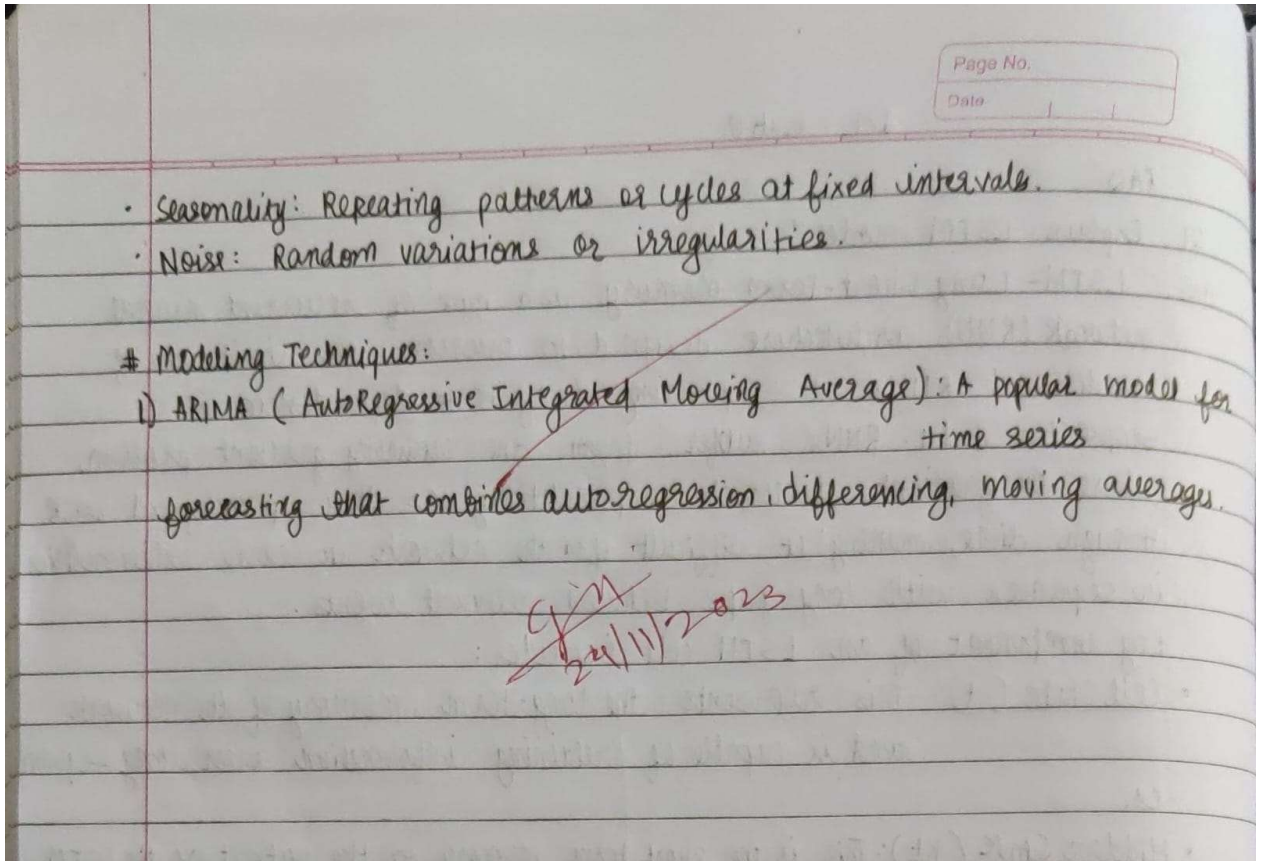 Page No.
Date
• Seasonality: Repeating patterns or cycles at fixed intervals.
• Noise: Random variations or irregularities.
# Modeling Techniques:
1) ARIMA (AutoRegressive Integrated Moving Average): A popular model for
time series
forecasting that combines autoregression, differencing, moving averages.
24/11/2023